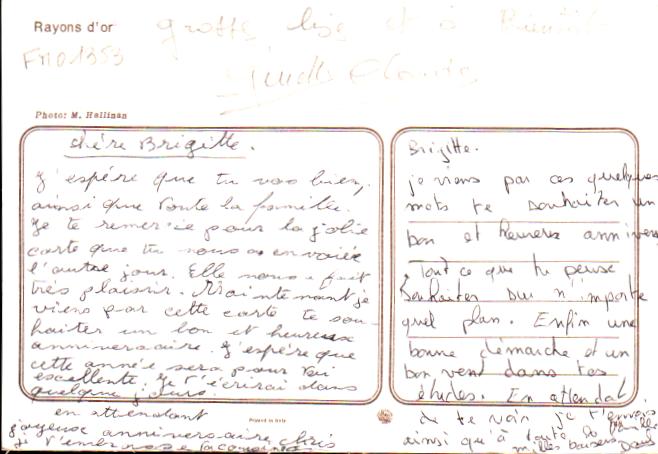 Rayons d'or
grosse bise et à Bientôt
FM01353
Photo: M. Hallinan
chère Brigitte.
J'espère que tu vas bien,
ainsi que toute la famille.
Je te remercie pour la jolie
carte que tu nous a envoiée
l'autre jour. Elle nous a fait
très plaisir. Maintenant je
viens par cette carte te sou-
haiter un bon et heureux
anniversaire. J'espère que
cette année sera pour toi
excellente. Je t'écrirai dans
quelque jours.
en attendant
joyeuse anniversaire
je t'embrasse
Printed in Italy
Brigitte.
je viens par ces quelques
mots te souhaiter un
bon et heureux annivers
Tout ce que tu peuse
souhaiter sur n'importe
quel plan. Enfin une
bonne démarche et un
bon vent dans tes
études. En attendat
de te voir je t'envois
ainsi qu'à toute la famille
milles baisers